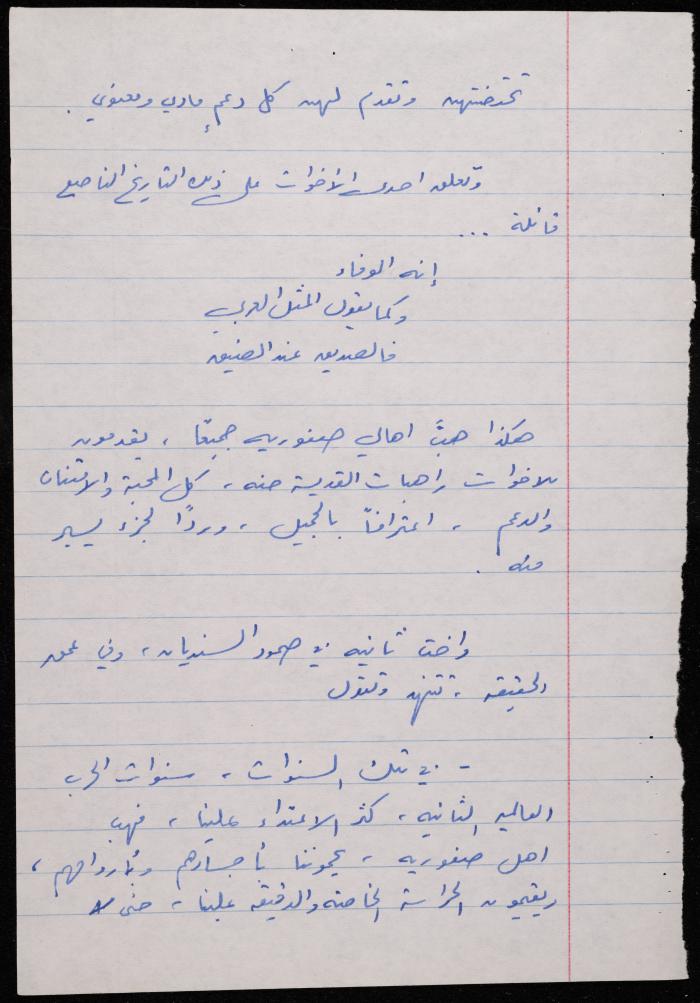 تحتضنهن وتقدم لهن كل دعم مادي ومعنوي .
وتعلق احدى الأخوات على ذلك التاريخ الناصع
قائلة ...
إنه الوفاء
وكما يقول المثل العربي
فالصديق عند الضيق
هكذا هبَّ اهالي صفوريه جميعًا ، يقدمون
للاخوات راهبات القديسة حنه ، كل المحبة والامتنان
والدعم ، اعترافاً بالجميل ، وردًا لجزء يسير
منه .
واخت ثانيه في صمود السنديان ، وفي عمق
الحقيقه ، تتنهد وتقول
- في تلك السنوات ، سنوات الحرب
العالميه الثانيه ، كثر الاعتداء علينا ، فهب
اهل صفوريه ، يحموننا بأجسادهم وبأرواحهم ،
ويقيمون الحراسة الخاصة والدقيقه علينا ، حتى لا